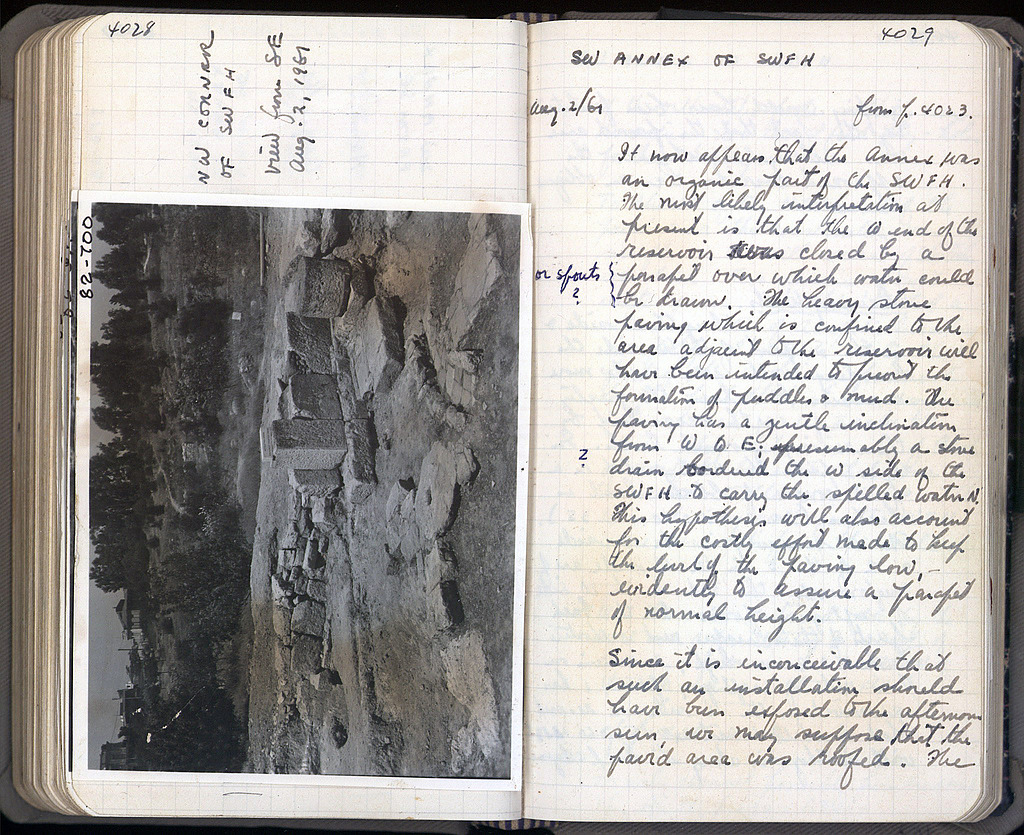 4028
NW CORNER
OF SWFH
View from SE
Aug. 2, 1961
82-700
4029
SW ANNEX OF SWFH
Aug. 2/61 from p. 4023.
It now appears that the Annex was
an organic part of the SWFH.
The most likely interpretation at
present is that the W end of the
reservoir was closed by a
parapet over which water could
or spouts
?
be drawn. The heavy stone
paving which is confined to the
area adjacent to the reservoir will
have been intended to prevent the
formation of puddles & mud. The
paving has a gentle inclination
from W to E; presumably a stone
?
drain bordered the W side of the
SWFH to carry the spilled water N.
This hypothesis will also account
for the costly effort made to keep
the level of the paving low, -
evidently to assure a parapet
of normal height.
Since it is inconceivable that
such an installation should
have been exposed to the afternoon
sun, we may suppose that the
paved area was roofed. The